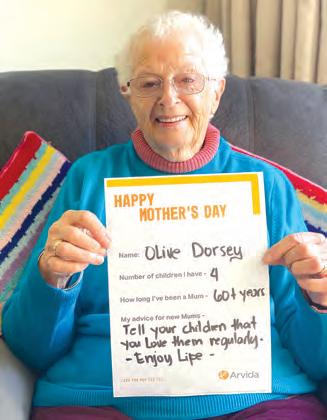 HAPPY
MOTHER'S DAY
Name: Olive Dorsey
Number of children I have - 4
How long I've been a Mum - 60+ years
My advice for new Mums -
Tell your children that
you Love them regularly.
- Enjoy Life -
Arvida